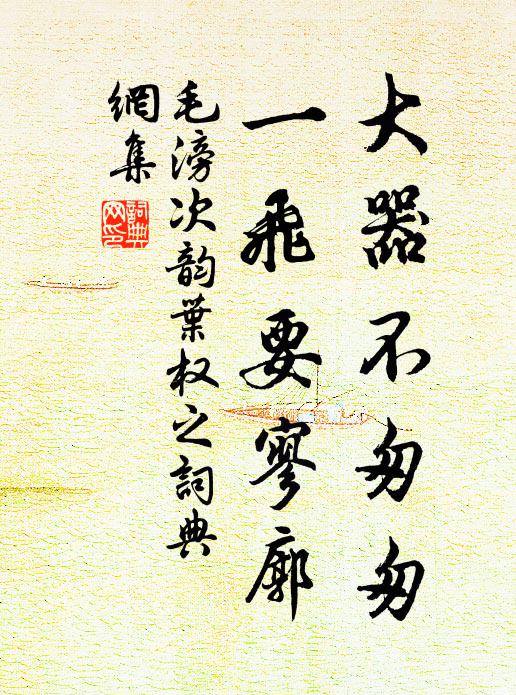 大器不匆匆
一飛要寥廓
毛滂次韵葉权之詞典
網集
詞典
网印